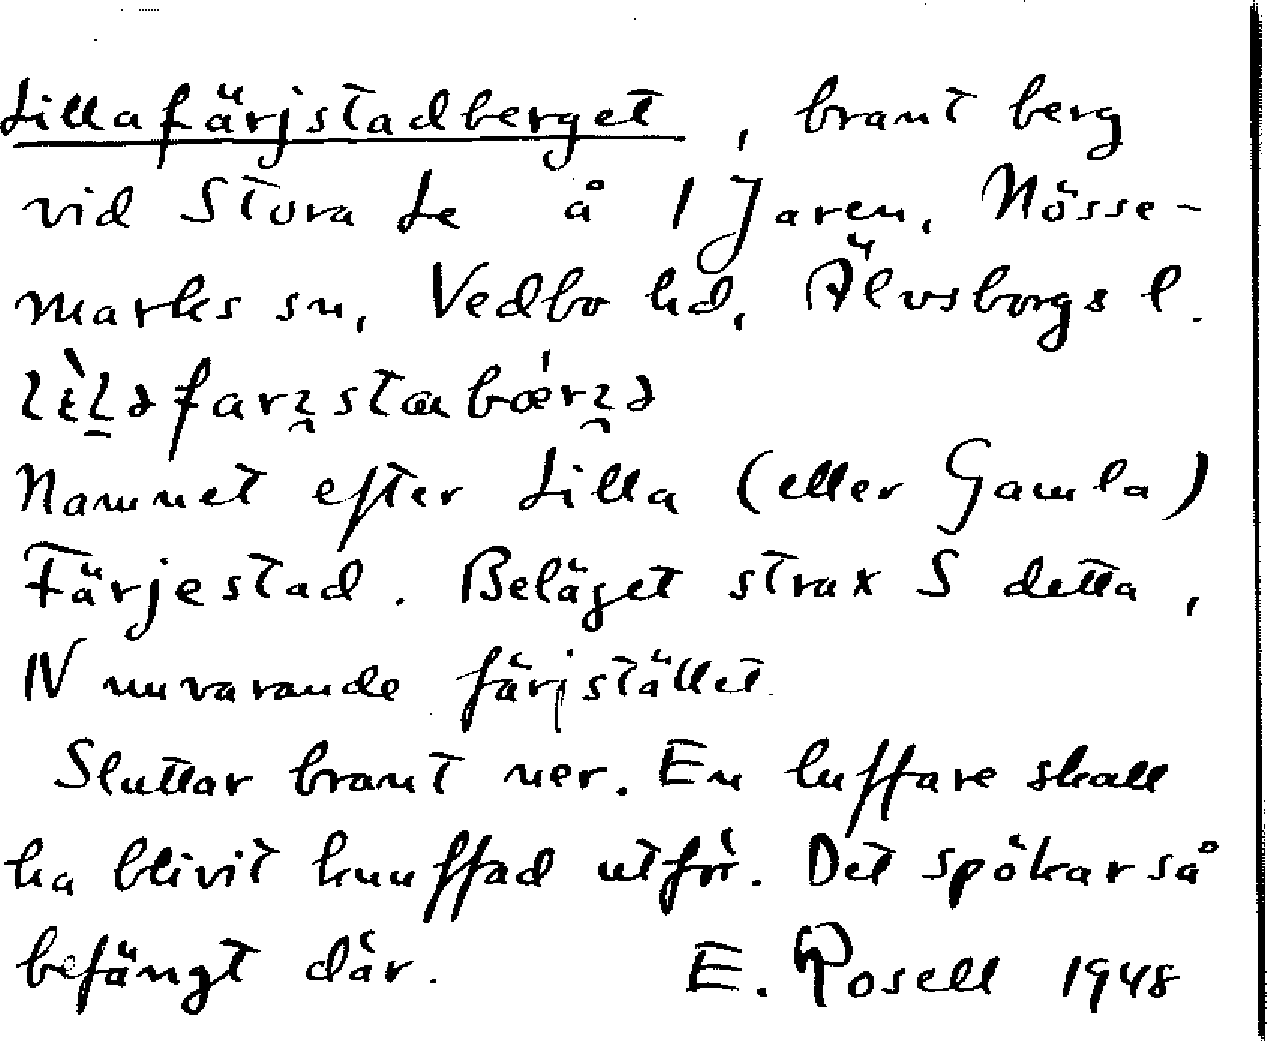 Lillafärjstadberget, brant berg
vid Stora Le å 1 Jaren, Nösse-
marks sn, Vedbo hd, Älvsborgs l.
Namnet efter Lilla (eller Gamla)
Färjestad. Beläget strax S detta,
N nuvarande färjstället.
Sluttar brant ner. En luffare skall
ha blivit knuffad utför. Det spökar så
befängt där. E. Rosell 1948